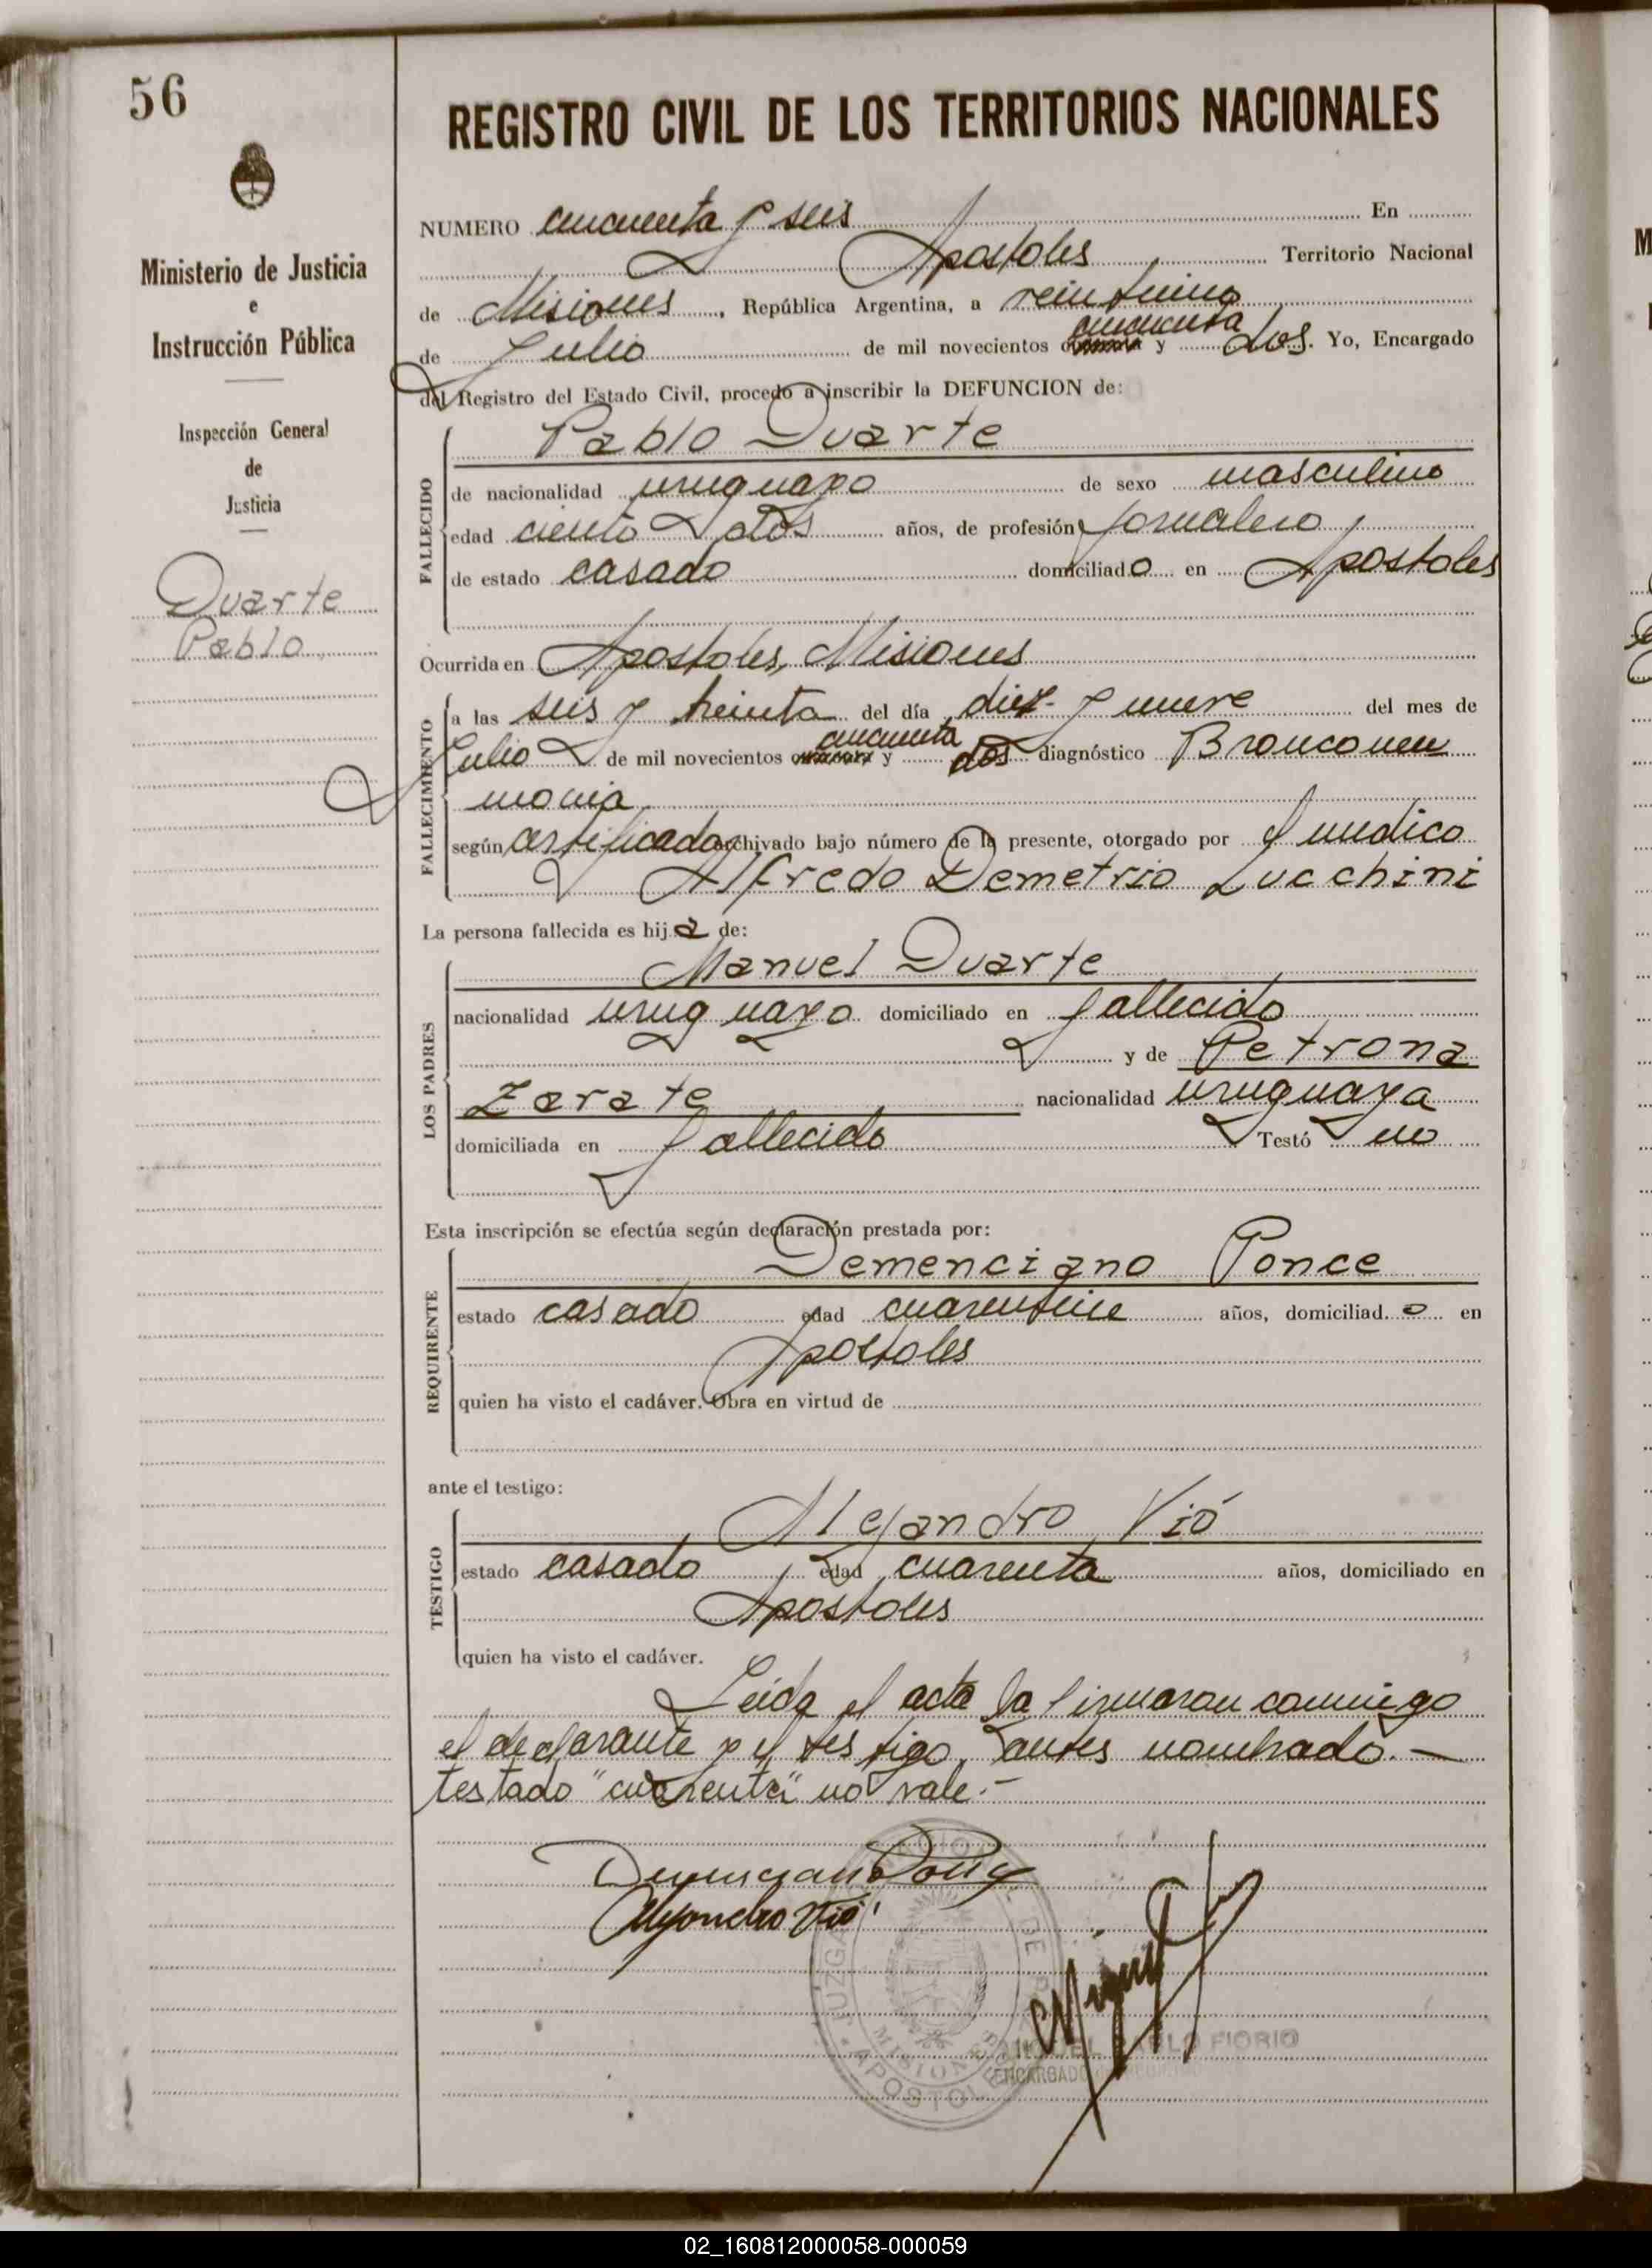 56
Ministerio de Justicia
e
Instrucción Pública
Inspección General
de
Justicia
Duarte
Pablo
REGISTRO CIVIL DE LOS TERRITORIOS NACIONALES
NUMERO cincuenta y seis En
Apostoles Territorio Nacional
de Misiones, República Argentina, a veintiuno
cincuenta
de Julio de mil novecientos cuarenta y dos. Yo, Encargado
del Registro del Estado Civil, procedo a inscribir la DEFUNCION de:
FALLECIDO
Pablo Duarte
de nacionalidad uruguayo de sexo masculino
edad ciento dos años, de profesión Jornalero,
de estado casado domiciliado en Apostoles
Ocurrida en Apostoles, Misiones
FALLECIMIENTO
a las seis y treinta del día diez y nueve del mes de
cincuenta
Julio de mil novecientos cuarenta y dos diagnóstico Bronconeu
monia
según certificado archivado bajo número de la presente, otorgado por el medico
Alfredo Demetrio Lucchini
La persona fallecida es hija de:
LOS PADRES
Manuel Duarte
nacionalidad uruguayo domiciliado en fallecido
y de Petrona
Zarate nacionalidad uruguaya
domiciliada en fallecido Testó no
Esta inscripción se efectúa según declaración prestada por:
REQUIRENTE
Demenciano Ponce
estado casado edad años, domiciliado en
Apostoles
quien ha visto el cadáver. Obra en virtud de
ante el testigo:
TESTIGO
Alejandro Vió
estado casado edad cuarenta años, domiciliado en
Apostoles
quien ha visto el cadáver.
Leida el acta la firmaron conmigo
el declarante y el testigo, antes nombrado.—
testado "cuarenta" no vale.—
Demenciano Ponce
Alejandro Vió
JUZGADO DE PAZ
MISIONES
APOSTOLES
MIGUEL PABLO FIORIO
ENCARGADO
02_160812000058-000059